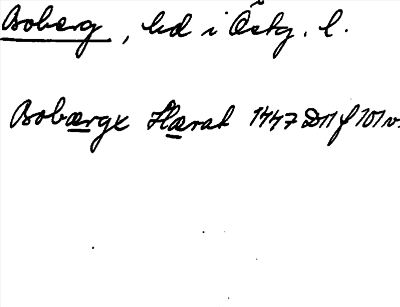 Boberg, hd i Östg. l.
Bobærgx Hærat 1447 D11 f 101 v.